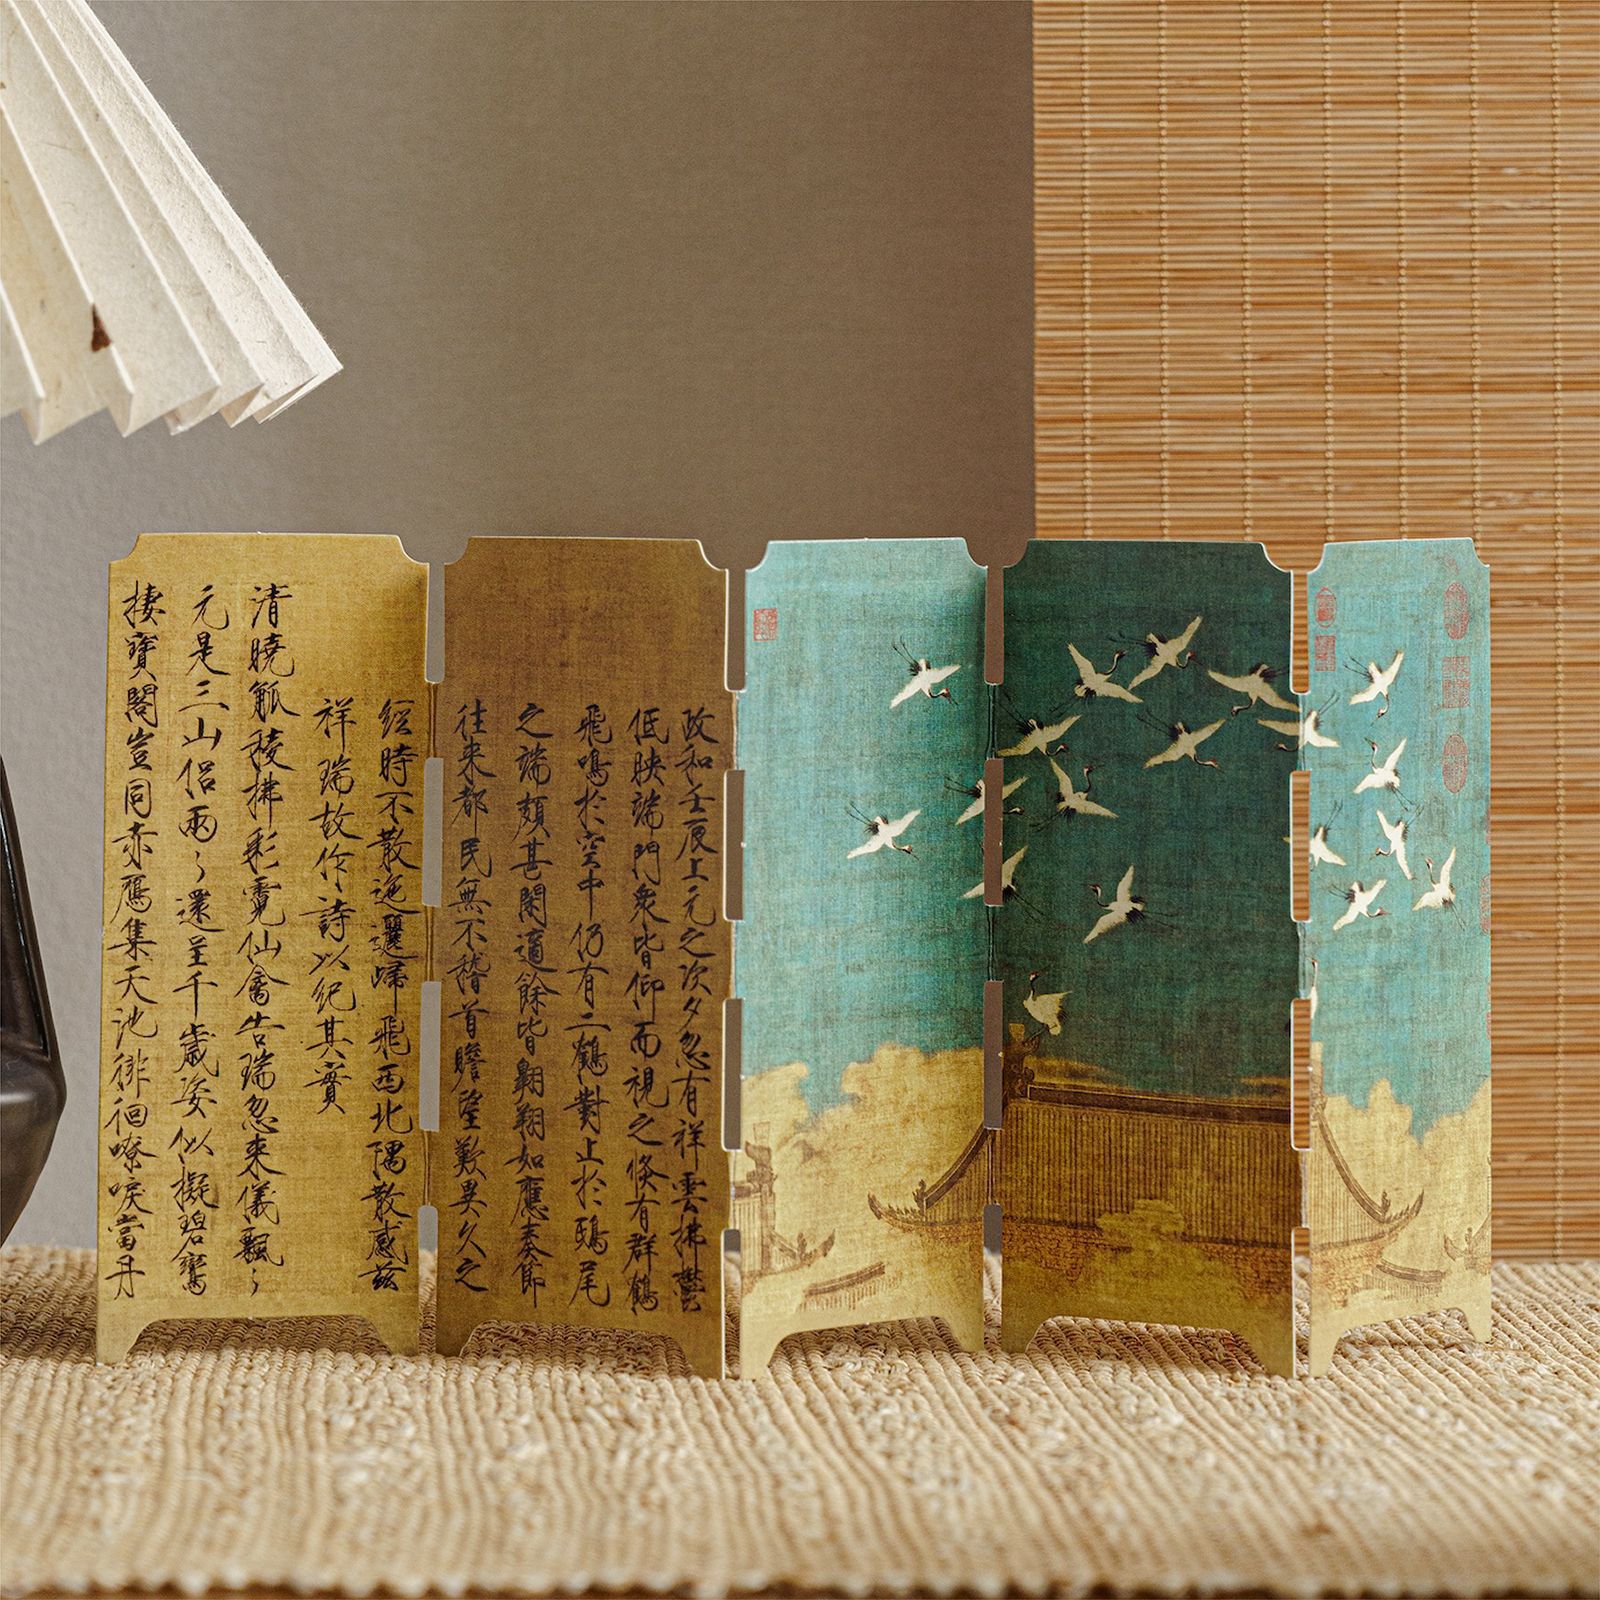 政和壬辰上元之次夕忽有祥雲拂鬱
低映端門衆皆仰而視之倏有群鶴
飛鳴於空中仍有二鶴對止於鴟尾
之端頗甚閑適餘皆翱翔如應奏節
往來都民無不稽首瞻望歎異久之
經時不散迤邐歸飛西北隅散感茲
祥瑞故作詩以紀其實
清曉觚稜拂彩霓仙禽告瑞忽來儀飄〻
元是三山侶兩〻還呈千歲姿似擬碧鸞
棲寶閣豈同赤鴈集天池徘徊嘹唳當丹